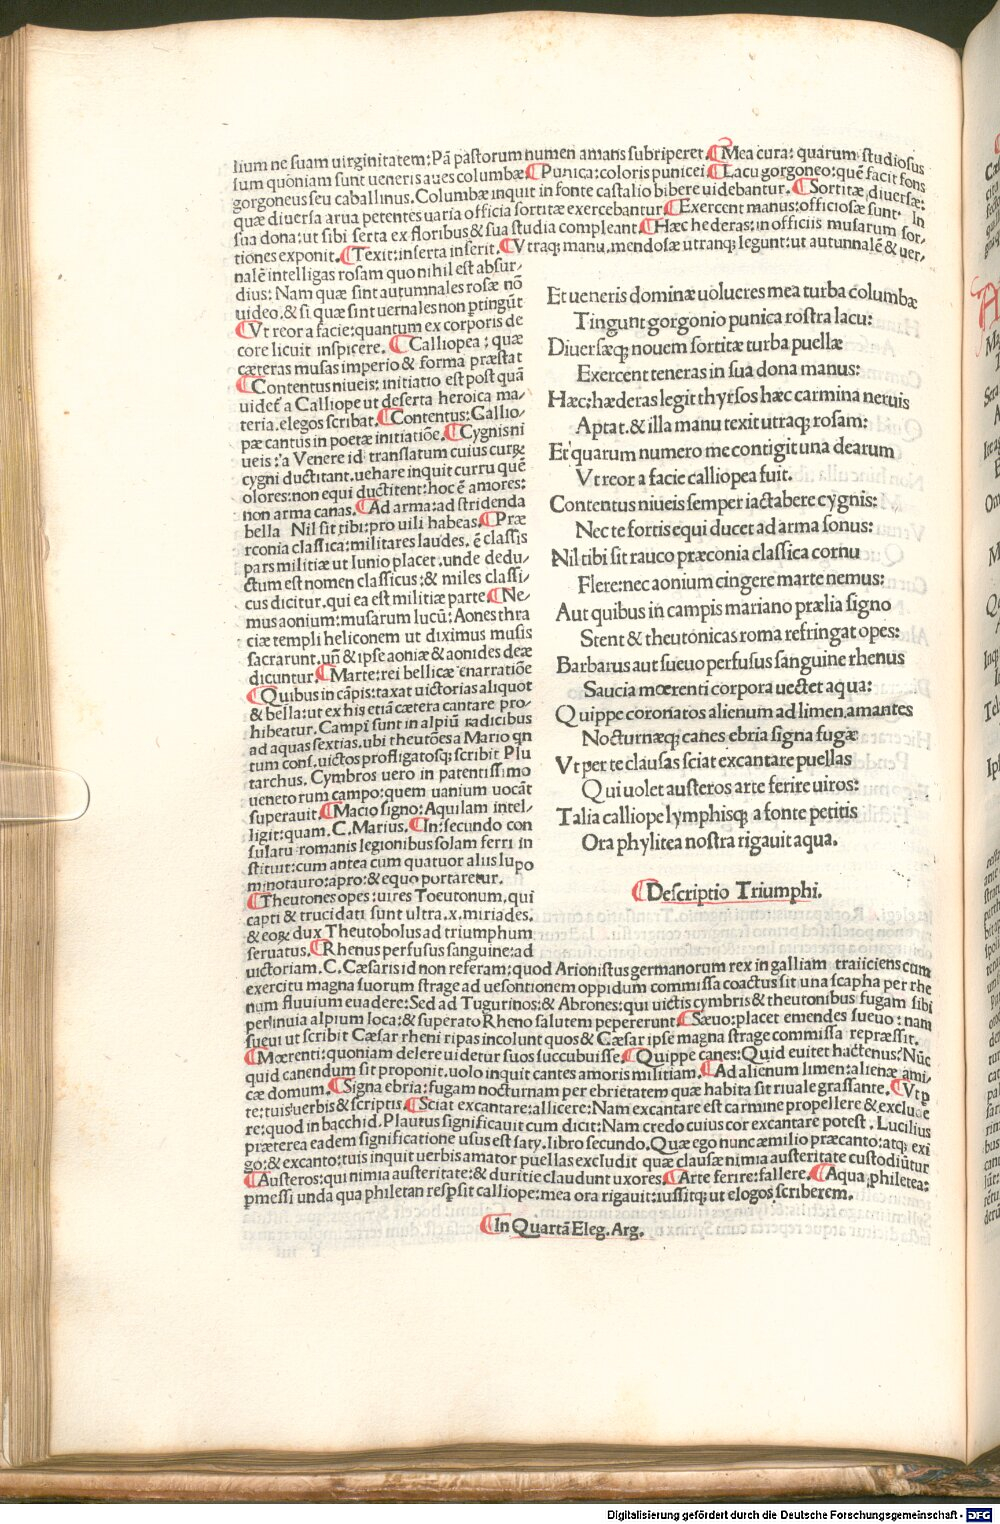 lium ne suam uirginitatem: Pã pastorum numen amans subriperet. ¶Mea cura: quarum studiosus
sum quoniam sunt ueneris aues columbæ ¶Punica: coloris punicei ¶Lacu gorgoneo: quẽ facit fons
gorgoneus seu caballinus. Columbæ inquit in fonte castalio bibere uidebantur. ¶Sortitæ diuersæ:
quæ diuersa arua petentes uaria officia sortitæ exercebantur ¶Exercent manus: officiosæ sunt. In
sua dona: ut sibi serta ex floribus & sua studia compleant ¶Hæc hederas: in officiis musarum sor/
tiones exponit. ¶Texit: inserta inserit. ¶Vtraq; manu. mendosæ utranq; legunt: ut autunnalẽ & uer/
nalẽ intelligas rosam quo nihil est absur/
dius: Nam quæ sint autumnales rosæ nõ
uideo. & si quæ sint uernales non ptingũt
¶Vt reor a facie: quantum ex corporis de
core licuit inspicere. ¶Calliopea: quæ
cæteras musas imperio & forma præstat
¶Contentus niueis: initiatio est post quã
uidet̃ a Calliope ut deserta heroica ma/
teria. elegos scribat. ¶Contentus: Gallio/
pæ cantus in poetæ initiatiõe. ¶Cygnis ni
ueis: a Venere id translatum cuius curꝝ
cygni ductitant. uehare inquit curru quẽ
olores: non equi ductitent: hoc ẽ amores:
non arma canas. ¶Ad arma: ad stridenda
bella Nil sit tibi: pro uili habeas. ¶Præ
rconia classica: militares laudes. ẽ classis
pars militiæ ut Iunio placet. unde dedu/
ctum est nomen classicus: & miles classi/
cus dicitur. qui ea est militiæ parte. ¶Ne/
mus aonium: musarum lucũ: Aones thra
ciæ templi heliconem ut diximus musis
sacrarunt. uñ & ipse aoniæ & aonides deæ
dicuntur. ¶Marte: rei bellicæ enarratiõe
¶Quibus in cãpis: taxat uictorias aliquot
& bella: ut ex his etiã cætera cantare pro/
hibeatur. Campi sunt in alpiũ radicibus
ad aquas sextias. ubi theutões a Mario qn
tum cons. uictos profligatosq; scribit Plu
tarchus. Cymbros uero in patentissimo
uenetorum campo: quem uanium uocãt
superauit. ¶Macio signo: Aquilam intel/
ligit: quam. C. Marius. ¶In: secundo con
sulatu romanis legionibus solam ferri in
stituit: cum antea cum quatuor aliis lupo
minotauro: apro: & equo portaretur.
¶Theutones opes: uires Toeutonum, qui
capti & trucidati sunt ultra. x. miriades.
& eoꝝ dux Theutobolus ad triumphum
seruatus. ¶Rhenus perfusus sanguine: ad
Et ueneris dominæ uolucres mea turba columbæ
Tingunt gorgonio punica rostra lacu:
Diuersæq; nouem sortitæ turba puellæ
Exercent teneras in sua dona manus:
Hæc: hæderas legit thyrsos hæc carmina neruis
Aptat. & illa manu texit utraq; rosam:
Et quarum numero me contigit una dearum
Vt reor a facie calliopea fuit.
Contentus niueis semper iactabere cygnis:
Nec te fortis equi ducet ad arma sonus:
Nil tibi sit rauco præconia classica cornu
Flere: nec aonium cingere marte nemus:
Aut quibus in campis mariano prælia signo
Stent & theutonicas roma refringat opes:
Barbarus aut sueuo perfusus sanguine rhenus
Saucia mœrenti corpora uectet aqua:
Quippe coronatos alienum ad limen amantes
Nocturnæq; canes ebria signa fugæ
Vt per te clausas sciat excantare puellas
Qui uolet austeros arte ferire uiros:
Talia calliope lymphisq; a fonte petitis
Ora phyletea nostra rigauit aqua.
¶Descriptio Triumphi.
uictoriam. C. Cæsaris id non referam: quod Arionistus germanorum rex in galliam traiiciens cum
exercitu magna suorum strage ad uesontionem oppidum commissa coactus sit una scapha per rhe
num fluuium euadere: Sed ad Tugurinos: & Abrones: qui uictis cymbris & theutonibus fugam sibi
perinuia alpium loca: & superato Rheno salutem pepererunt ¶Sæuo: placet emendes sueuo: nam
sueui ut scribit Cæsar rheni ripas incolunt quos & Cæsar ipse magna strage commissa repræssit.
¶Mœrenti: quoniam delere uidetur suos succubuisse. ¶Quippe canes: Quid euitet hactenus: Nũc
quid canendum sit proponit. uolo inquit cantes amoris militiam. ¶Ad alienum limen: alienæ ami/
cæ domum. ¶Signa ebria: fugam nocturnam per ebrietatem quæ habita sit riuale grassante. ¶Vt p
te: tuis uerbis & scriptis. ¶Sciat excantare: allicere: Nam excantare est carmine propellere & exclude
re: quod in bacchid. Plautus significauit cum dicit: Nam credo cuius cor excantare potest. Lucilius
præterea eadem significatione usus est saty. libro secundo. Quæ ego nunc æmilio præcanto: atq; exi
go: & excanto: tuis inquit uerbis amator puellas excludit quæ clausæ nimia austeritate custodiũtur
¶Austeros: qui nimia austeritate: & duritie claudunt uxores. ¶Arte ferire: fallere. ¶Aqua philetea:
pmessi unda qua philetan respsit calliope: mea ora rigauit: iussitq; ut elogos scriberem.
¶In Quartã Eleg. Arg.
Digitalisierung gefördert durch die Deutsche Forschungsgemeinschaft - DFG